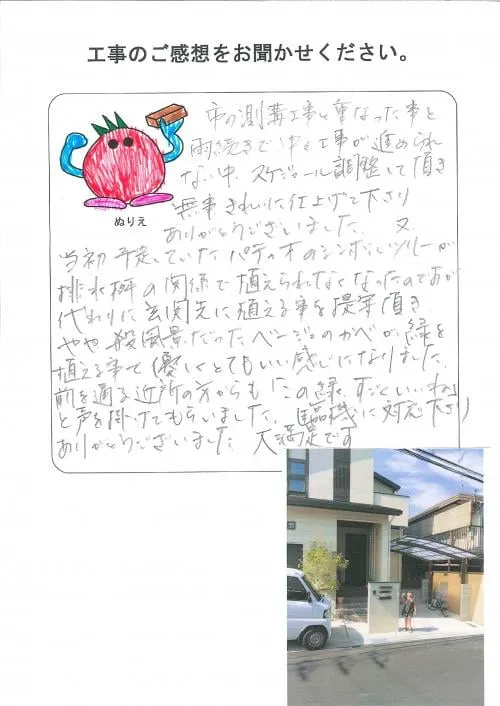 工事のご感想をお聞かせください。
市の側溝工事と重なった事と
雨続きで中々工事が進められ
ない中、スケジュール調整して頂き
無事きれいに仕上げて下さり
ありがとうございました。又、
ぬりえ
当初予定していたパティオのシンボルツリーが
排水桝の関係で植えられなくなったのですが
代わりに玄関先に植える事を提案頂き
やや殺風景だったベージュのかべが緑を
植える事で優しくとてもいい感じになりました。
前を通る近所の方からも「この緑、すごくいいね」
と声を掛けてもらいました。臨機に対応下さり
ありがとうございました 大満足です